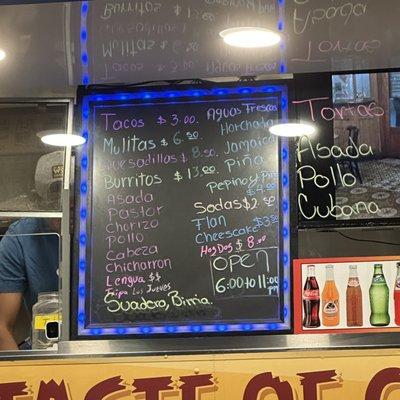 Tacos $3.00
Mulitas $6.50
Quesadillas $8.50
Burritos $13.00
Asada
Pastor
Chorizo
Pollo
Cabeza
Chicharron
Lengua $$
Tripa Los Jueves
Suadero, Birria.
Aguas Frescas
Horchata
Jamaica
Piña
Pepino y
Sodas $2.50
Flan
Cheesecake $3.50
HogDogs $8.00
OPEN
6:00 to 11:00
pm
Tortas
Asada
Pollo
Cubana
TASTE OF